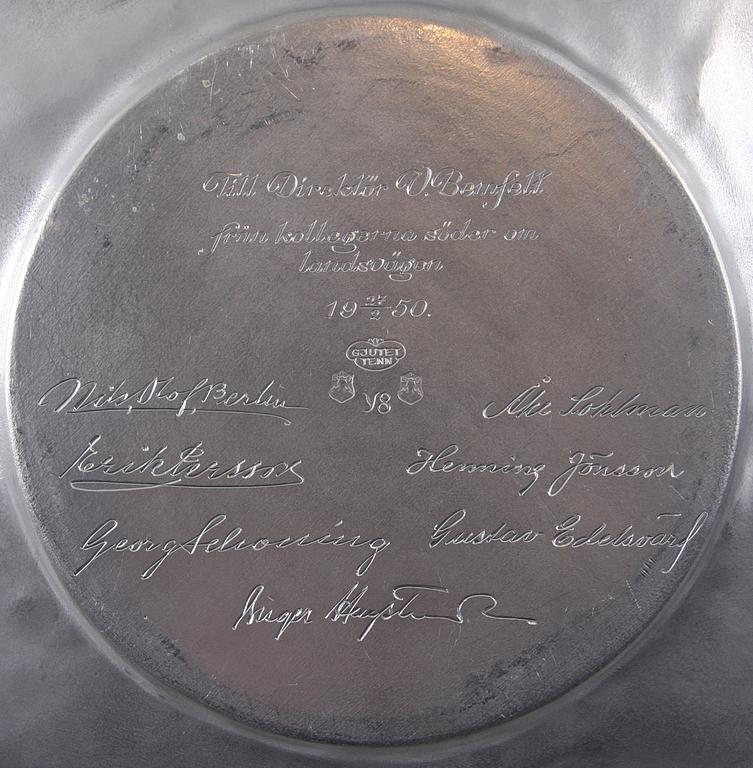 Till Direktör V. Bernfelt
från kollegerna söder om
landsvägen
19 27/2 50.
GJUTET
TENN
Y8
Nils Olof Berlin
Åke Sohlman
Erik Persson
Henning Jönsson
Georg Schoning
Gustav Edelsvärf
Birger